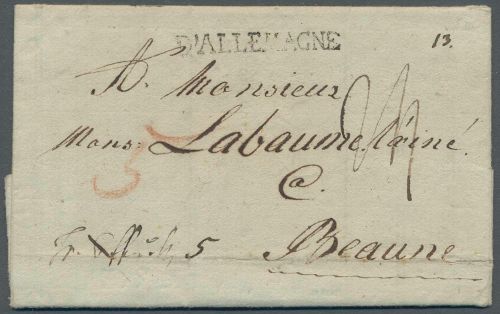 D'ALLEMAGNE
13.
A. Monsieur
Mons: Labaume L'ainé.
a.
Beaune
5